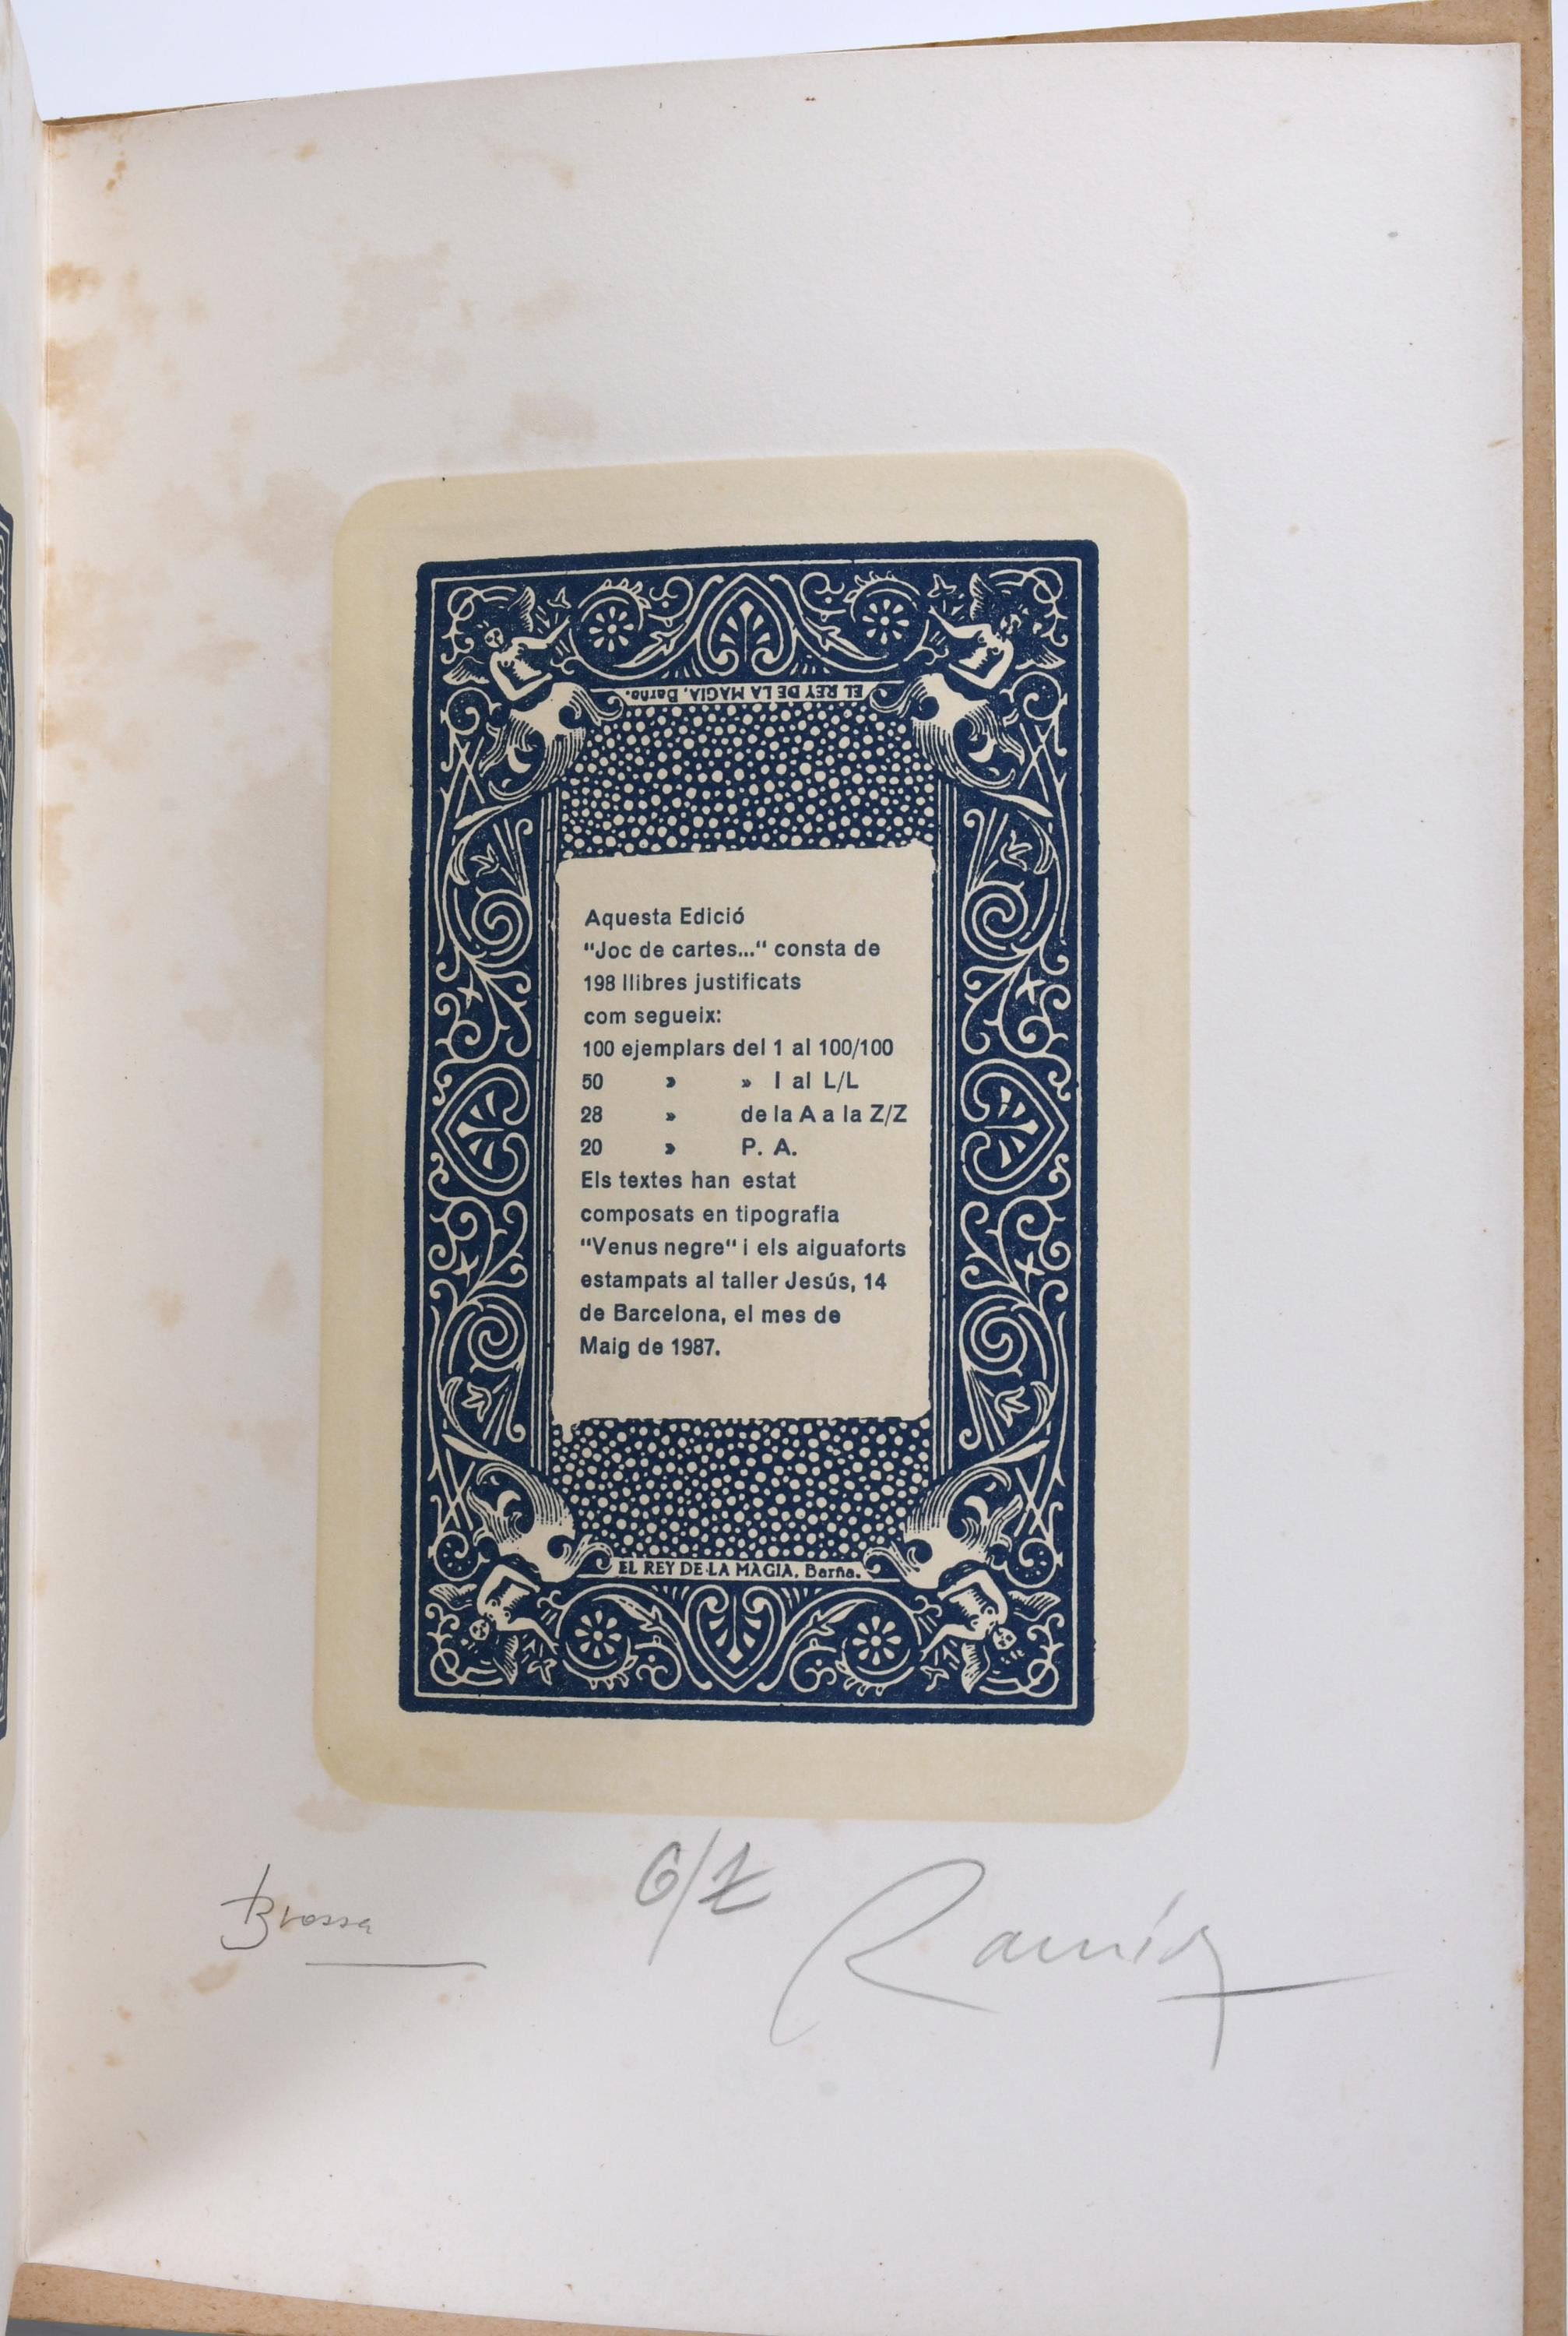 EL REY DE LA MAGIA, Barña.
Aquesta Edició
“Joc de cartes...“ consta de
198 llibres justificats
com segueix:
100 ejemplars del 1 al 100/100
50 » » I al L/L
28 » de la A a la Z/Z
20 » P. A.
Els textes han estat
composats en tipografia
“Venus negre“ i els aiguaforts
estampats al taller Jesús, 14
de Barcelona, el mes de
Maig de 1987.
EL REY DE LA MAGIA, Barña.
Brossa